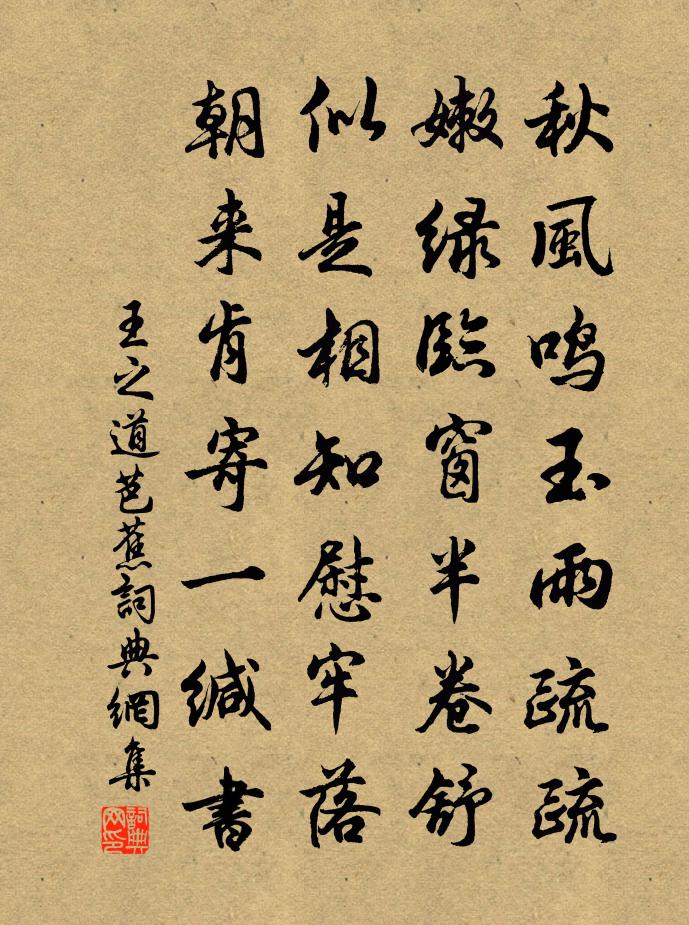 秋風鳴玉雨疏疏
嫩绿臨窗半卷舒
似是相知慰牢落
朝来肯寄一缄書
王之道芭蕉詞典網集
詞典网印